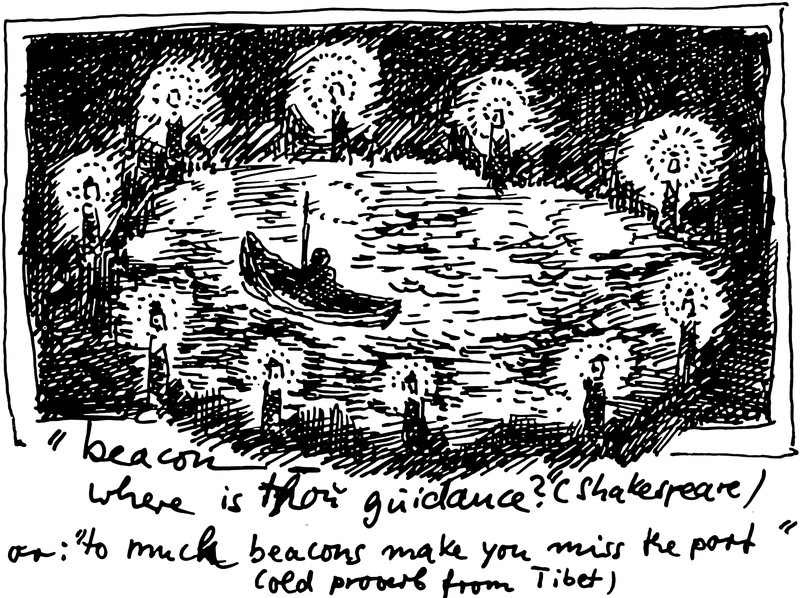 "beacon
where is thou guidance?" (Shakespeare)
or: "to much beacons make you miss the port"
(old proverb from Tibet)